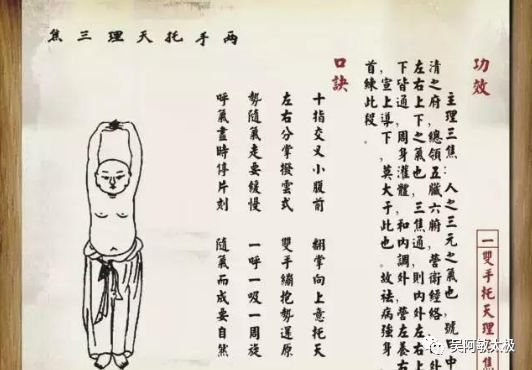 兩手托天理三焦
一雙手托天理
功效
主理三焦:人之三元之氣也,號
清之府,總領五臟六腑,營衛經絡,
左右上下之氣也,三焦通,則內外左右上
下皆通,周身灌體,和內調外,營左養右
宣上導下,莫大于此也。故祛病強身
首練此段。
口訣
十指交叉小腹前 翻掌向上意托天
左右分掌撥雲式 雙手繃抱勢還原
勢隨氣走要緩慢 一呼一吸一周旋
呼氣盡時停片刻 隨氣而成要自然
吴阿敏太极